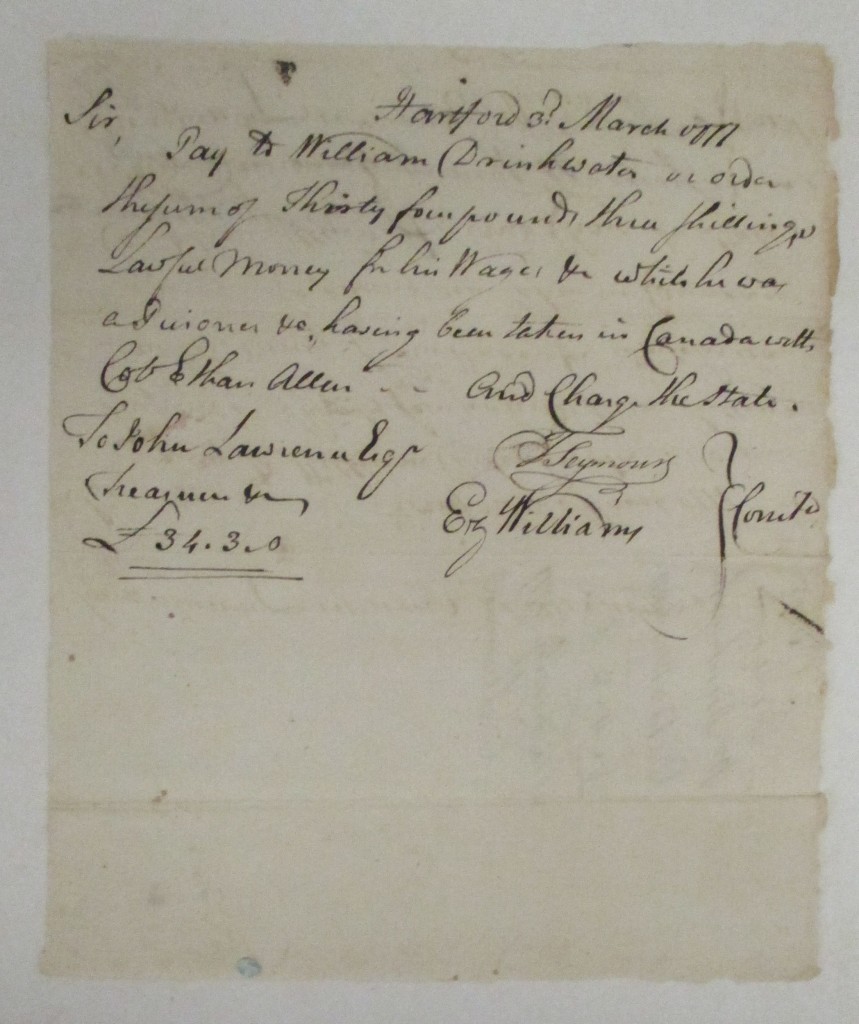 Hartford 3d. March 1777
Sir,
Pay to William Drinkwater or order
the sum of Thirty four pounds three shillings
Lawful Money for his Wages &c while he was
a Prisoner &c, having been taken in Canada with
Colo Ethan Allen - - And Charge the State.
To John Lawrence Esqr
Treasurer &c
£34.3.0
T Seymour
Ez Williams
Comtte